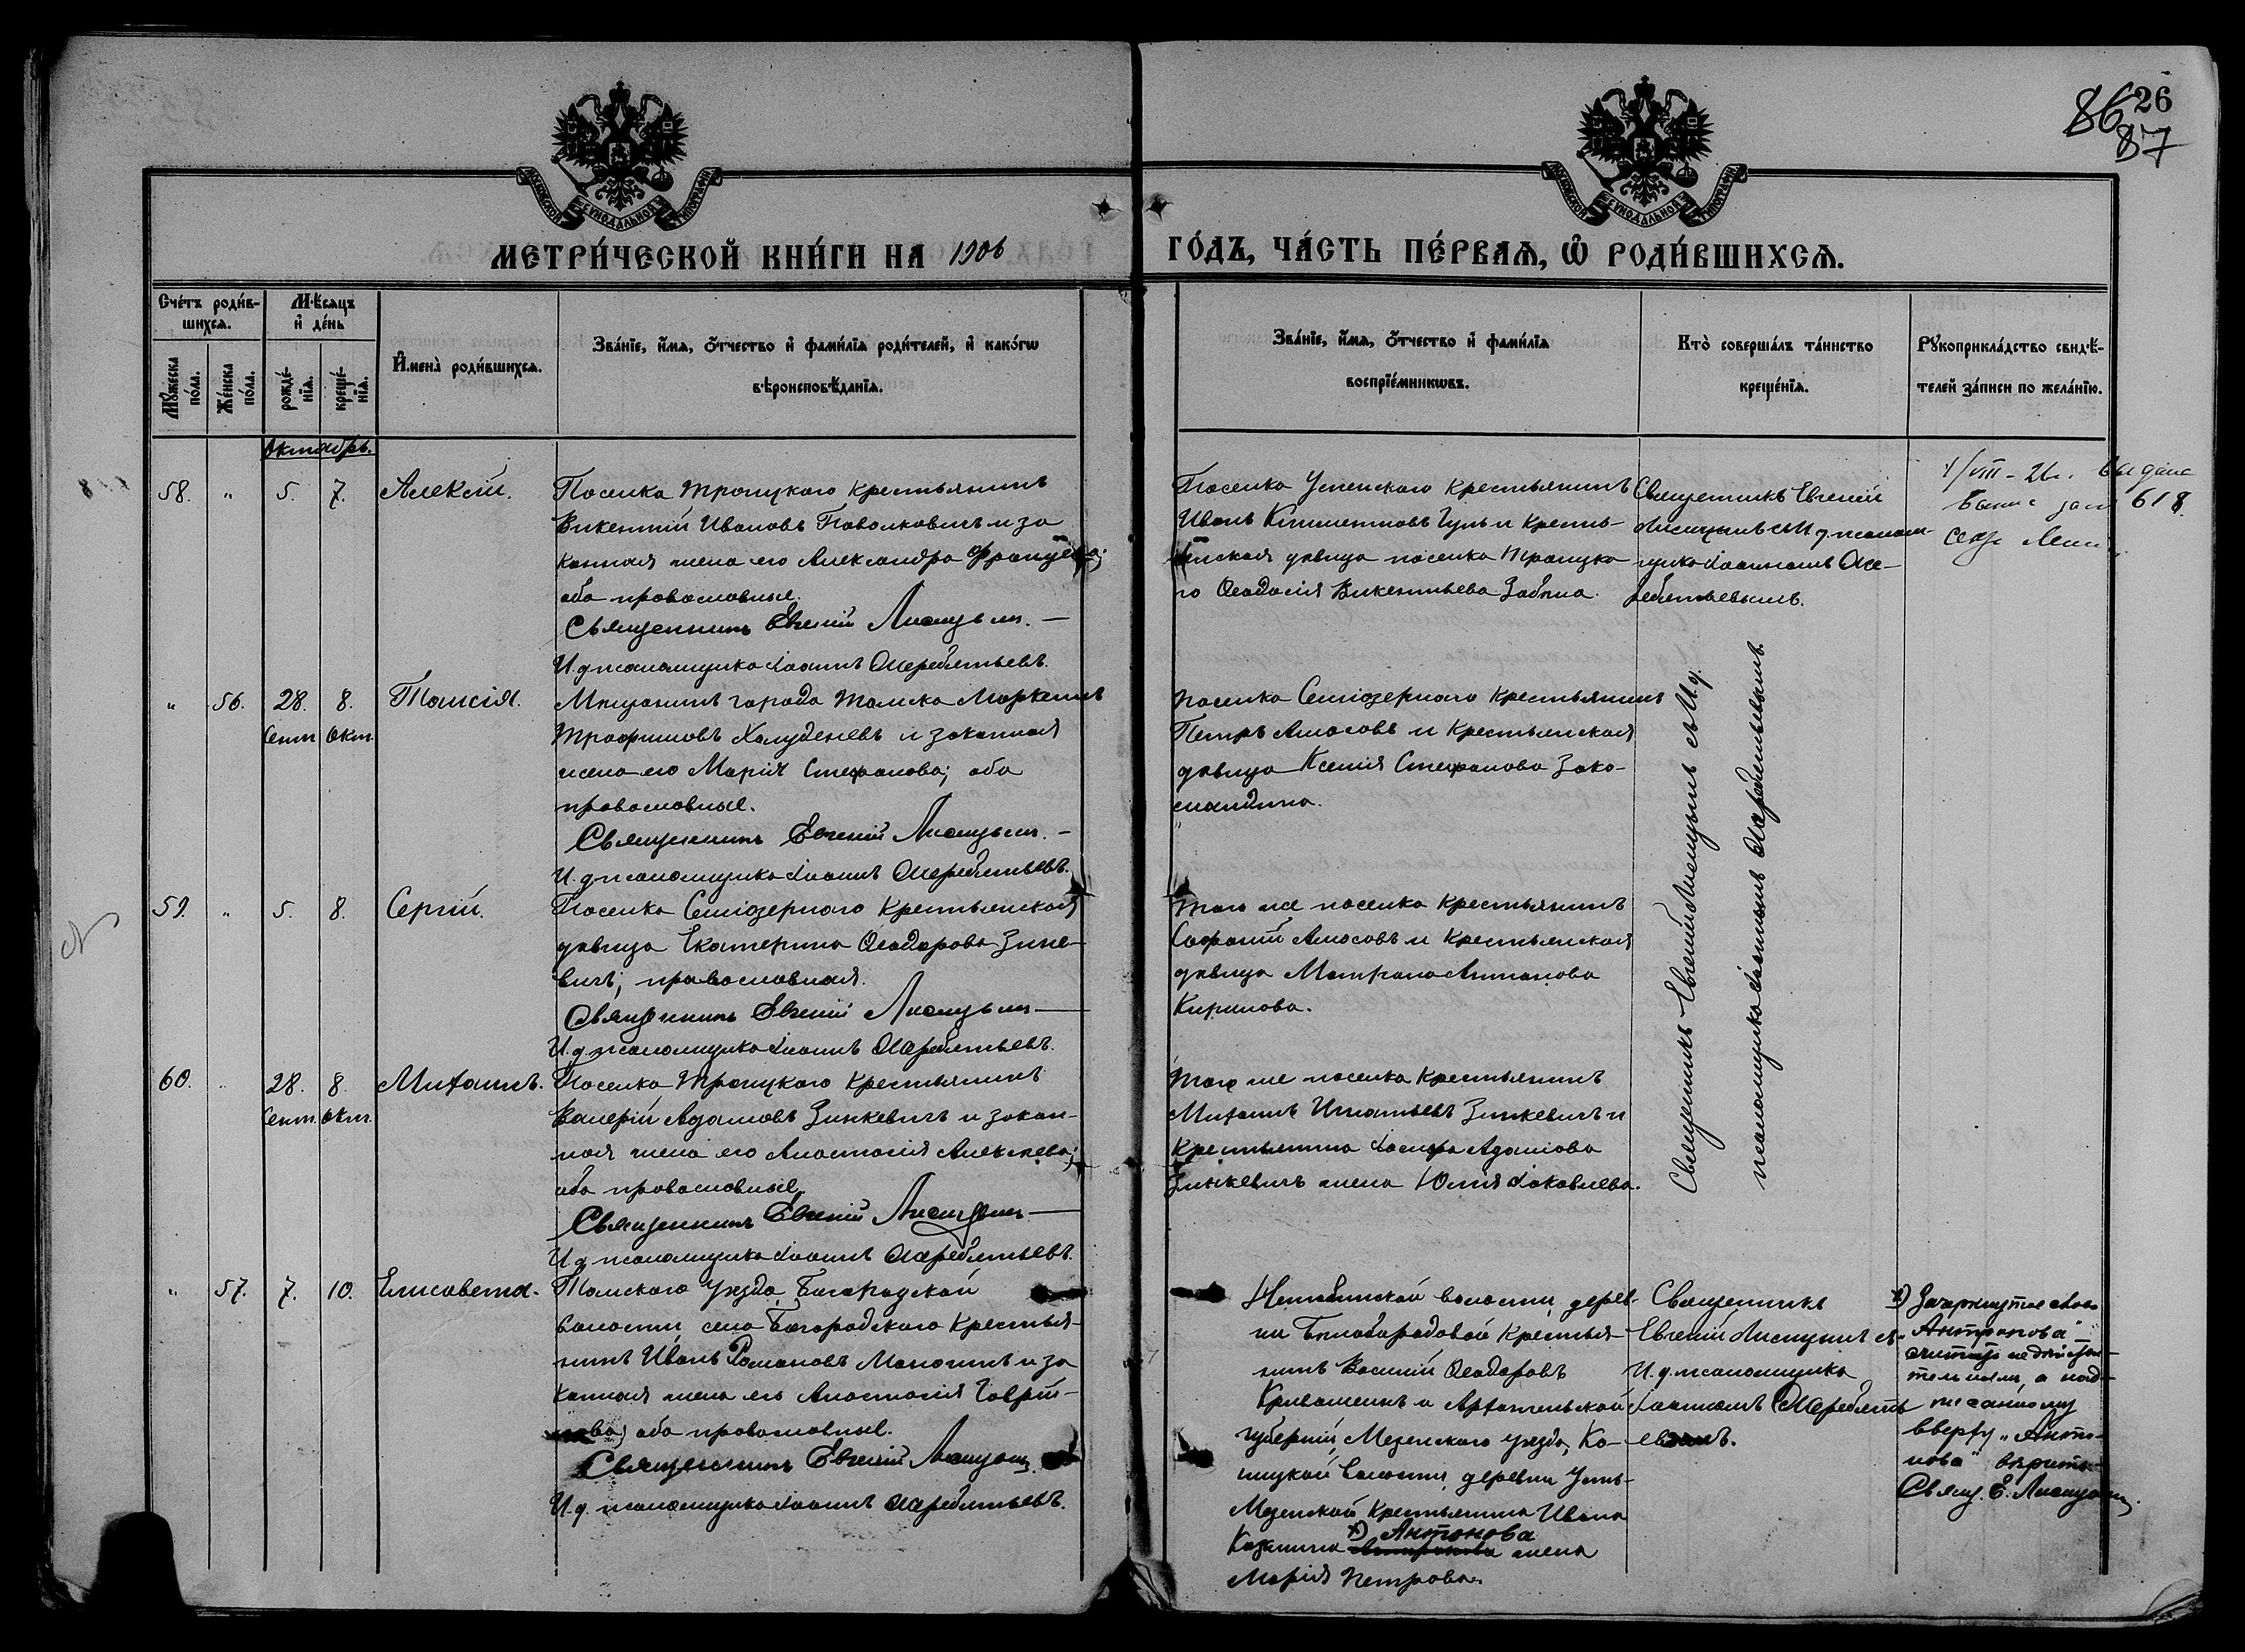 26
86
87
МОСКОВСКОЙ СѴНОДАЛЬНОЙ ТИПОГРАФІИ
МОСКОВСКОЙ СѴНОДАЛЬНОЙ ТИПОГРАФІИ
МЕТРИ́ЧЕСКОЙ КНИ́ГИ НА 1906
ГО́ДЪ, ЧА́СТЬ ПЕ́РВАѦ, Ѽ РОДИ́ВШИХСѦ.
Сче́тъ роди́в-
шихсѧ.
Мѣ́сѧцъ
и҆ де́нь
Мꙋ́жеска
по́ла.
Же́нска
по́ла.
рожде́-
нїѧ.
креще́-
нїѧ.
И҆мена̀ роди́вшихсѧ.
Зва́нїе, и҆́мѧ, ѻ҆́тчество и҆ фами́лїѧ роди́телей, и҆ како́гѡ
вѣроисповѣ́данїѧ.
Зва́нїе, и҆́мѧ, ѻ҆́тчество и҆ фами́лїѧ
воспрїе́мникѡвъ.
Кто̀ соверша́лъ та́инство
креще́нїѧ.
Рꙋкоприкла́дство свидѣ́-
телей за́писи по жела́нїю.
Октябрь.
58. " 5. 7. Алексій.
Поселка Троицкаго крестьянинъ
Викентій Ивановъ Поволковичъ и за
конная жена его Александра Францева;
оба православные.
Священникъ Евгеній Лисицынъ. —
И. д. псаломщика Іоаннъ Ожеребятьевъ.
Поселка Успенскаго крестьянинъ
Иванъ Климентовъ Гуль и кресть-
янская дѣвица поселка Троицка
го Ѳеодосія Викентьева
Священникъ Евгеній
Лисицынъ съ И. д. псалом-
щика Іоанномъ Оже-
ребятьевымъ.
1/VIII-21г. Выдана
618
" 56. 28. 8. Таисія.
Сент. Окт.
Мѣщанинъ города Томска Маркеллъ
Трофимовъ Халуденевъ и законная
жена его Марія Стефанова; оба
православные.
Священникъ Евгеній Лисицынъ. —
И. д. псаломщика Іоаннъ Ожеребятьевъ.
поселка Семіозернаго крестьянинъ
Петръ Амосовъ и крестьянская
дѣвица Ксенія Стефанова Зако-
Священникъ Евгеній Лисицынъ съ И. д.
псаломщика Іоанномъ Ожеребятьевымъ.
59. " 5. 8. Сергій.
Поселка Семіозернаго крестьянская
дѣвица Екатерина Ѳеодорова Зинке-
вичъ; православная.
Священникъ Евгеній Лисицынъ —
И. д. псаломщика Іоаннъ Ожеребятьевъ.
того же поселка крестьянинъ
Софоній Амосовъ и крестьянская
дѣвица Матрона Антонова
Кирилова.
60. " 28. 8. Михаилъ.
Сент. Окт.
Поселка Троицкаго крестьянинъ
Валерій Адамовъ Зинкевичъ и закон-
ная жена его Анастасія Алексѣева;
оба православные.
Священникъ Евгеній Лисицынъ —
И. д. псаломщика Іоаннъ Ожеребятьевъ.
того же поселка крестьянинъ
Михаилъ Игнатьевъ Зинкевичъ и
крестьянина Іосифа Адамова
Зинкевичъ жена Юлія Іаковлева.
" 57. 7. 10. Елисавета.
Томскаго уѣзда, Богородской
волости, села Богородскаго крестья-
нинъ Иванъ Романовъ и за
конная жена его Анастасія Гаврі-
лова; оба православные.
Священникъ Евгеній Лисицынъ.
И. д. псаломщика Іоаннъ Ожеребятьевъ.
волости, дерев-
ни Бѣлобородовой крестья-
нинъ Василій Ѳеодоровъ
и Архангельской
губерніи, Мезенскаго уѣзда, Ко-
волости, деревни Усть-
Мезенской крестьянина Ивана
х) Антонова
Казанцева Антропова жена
Марія Петрова.
Священникъ
Евгеній Лисицынъ съ
И. д. псаломщика
Іоанномъ Ожеребять-
евымъ.
х) Зачеркнутое слово
„Антропова"
считать недѣйстви-
тельнымъ, а над-
писанному
вверху „Анто-
нова" вѣрить.
Свящ. Е. Лисицынъ.